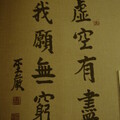 虛空有盡
我願無窮
聖嚴